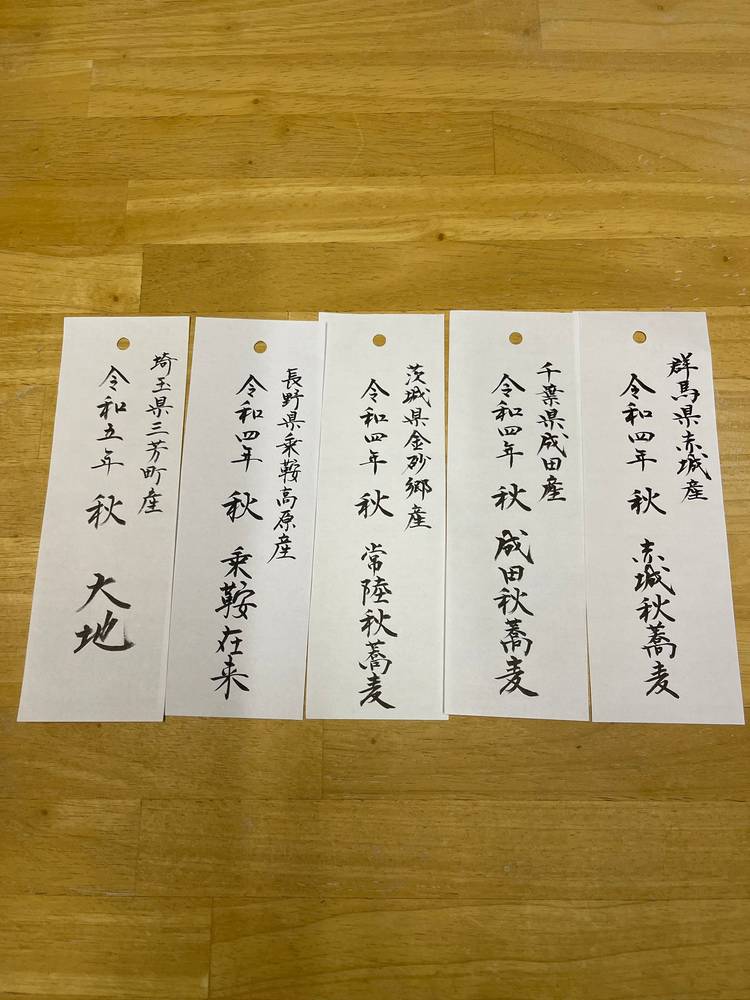 群馬県赤城産
令和四年 秋 赤城秋蕎麦
千葉県成田産
令和四年 秋 成田秋蕎麦
茨城県金砂郷産
令和四年 秋 常陸秋蕎麦
長野県乗鞍高原産
令和四年 秋 乗鞍在来
埼玉県三芳町産
令和五年 秋 大地